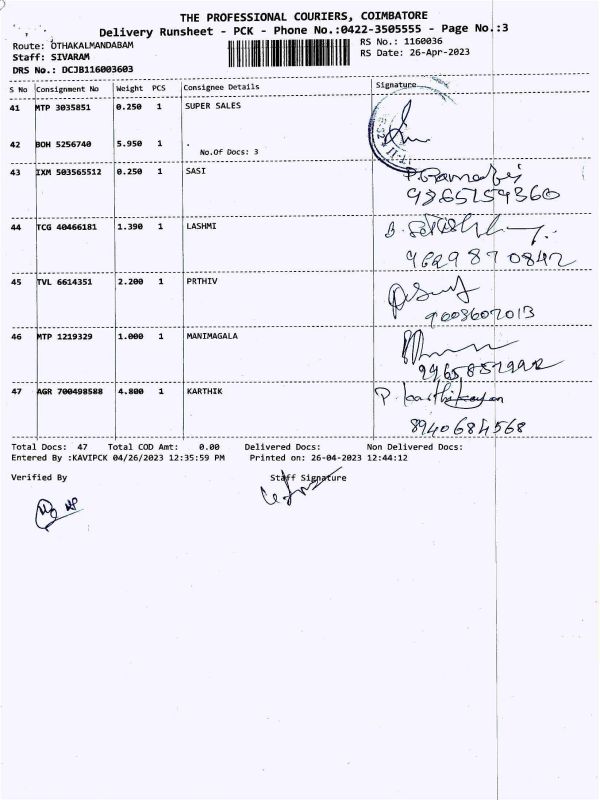 THE PROFESSIONAL COURIERS, COIMBATORE
Delivery Runsheet - PCK - Phone No.:0422-3505555 - Page No.:3
Route: OTHAKALMANDABAM RS No.: 1160036
Staff: SIVARAM RS Date: 26-Apr-2023
DRS No.: DCJB116003603
S No Consignment No Weight PCS Consignee Details Signature
41 MTP 3035851 0.250 1 SUPER SALES
42 BOH 5256740 5.950 1 .
No.Of Docs: 3
43 IXM 503565512 0.250 1 SASI
9865759360
44 TCG 40466181 1.390 1 LASHMI
9629870842
45 TVL 6614351 2.200 1 PRTHIV
9003607013
46 MTP 1219329 1.000 1 MANIMAGALA
47 AGR 700498588 4.800 1 KARTHIK P. karthikeyan
8940684568
Total Docs: 47 Total COD Amt: 0.00 Delivered Docs: Non Delivered Docs:
Entered By :KAVIPCK 04/26/2023 12:35:59 PM Printed on: 26-04-2023 12:44:12
Verified By Staff Signature